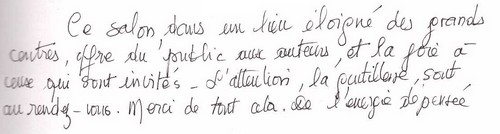 Ce salon dans un lieu éloigné des grands
centres, offre du public aux auteurs et la joie à
ceux qui sont invités - L'attention, la gentillesse, sont
au rendez-vous. Merci de tout cela. De l'énergie dépensée